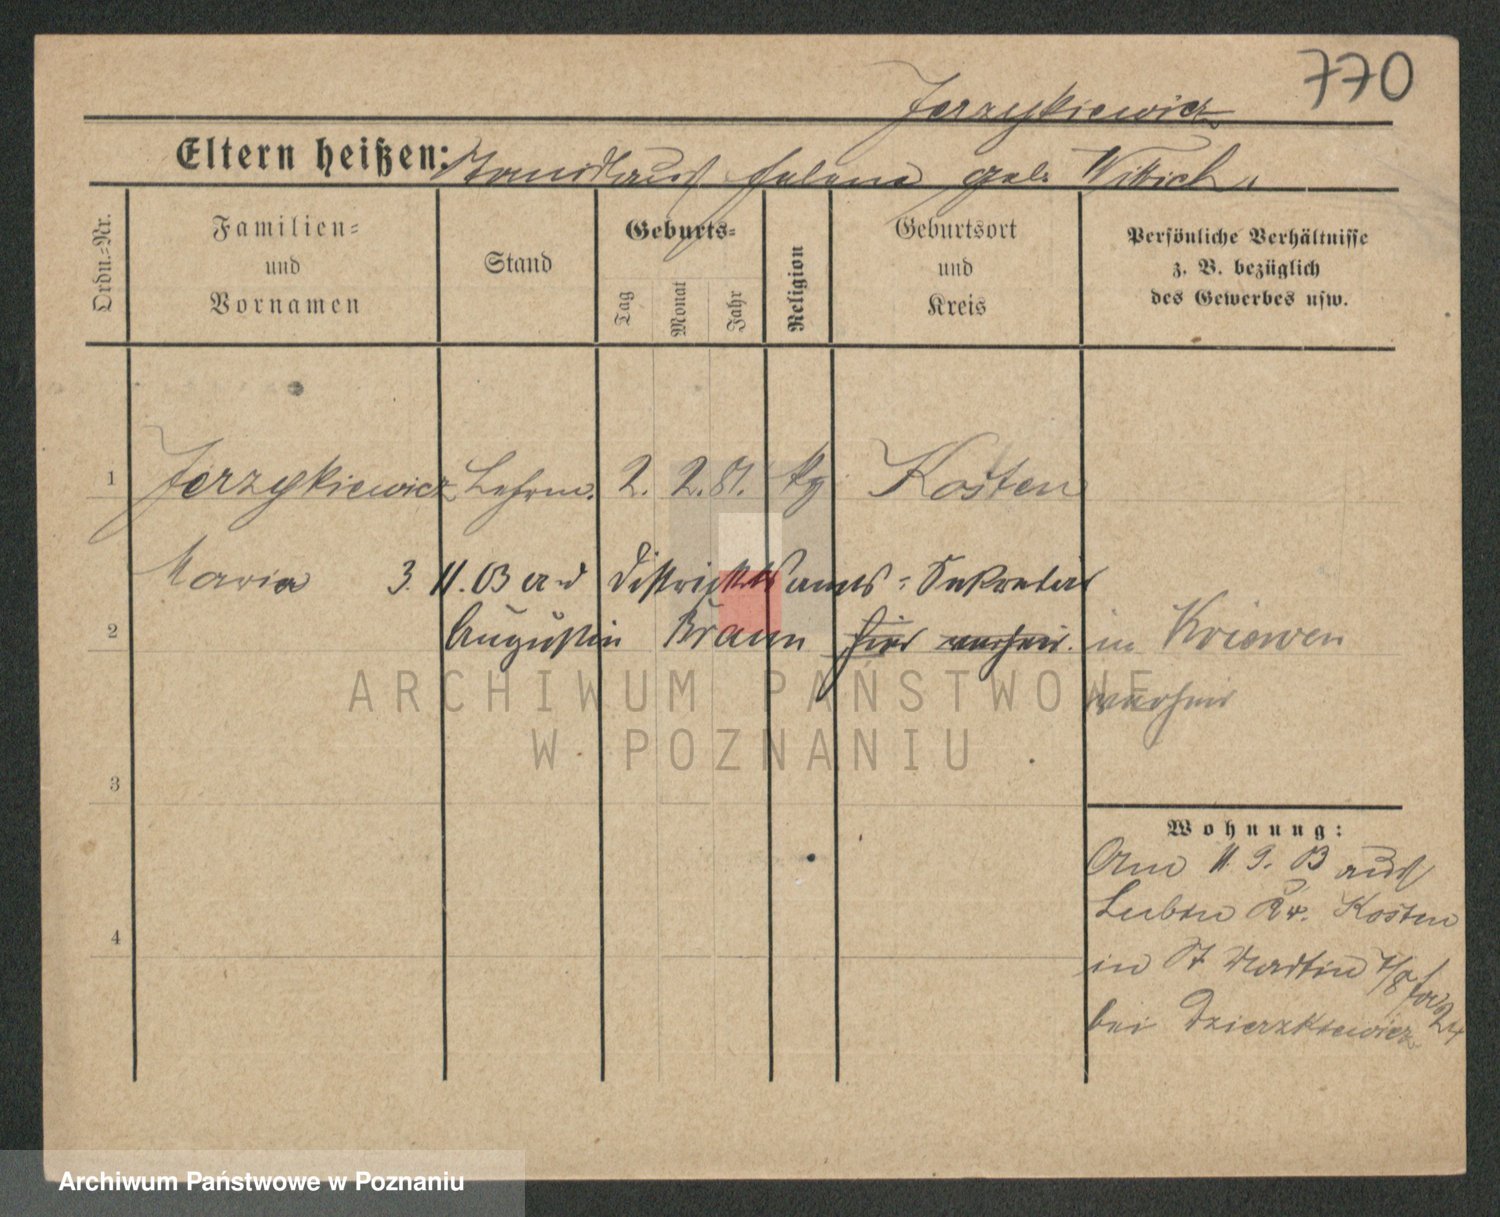 770
Jerzykiewicz
Eltern heißen: Stanislaus Helene geb. Wittich
Ordn.-Nr.
Familien- und Vornamen
Stand
Geburts-
Tag
Monat
Jahr
Religion
Geburtsort und Kreis
Persönliche Verhältnisse
z. B. bezüglich
des Gewerbes usw.
1 Jerzykiewicz Lehrin. 2. 2. 81. kg Kosten
Maria 3. 11. 03 an Distriktsamts-Sekretär
2 Augustin Braun hier verheir. in Kriewen
verheir
3
Wohnung:
Am 11. 9. 03 aus
Lubin Kr. Kosten
in St Martin
4
bei Dzierzkiewicz 24
ARCHIWUM PAŃSTWOWE
W POZNANIU
Archiwum Państwowe w Poznaniu